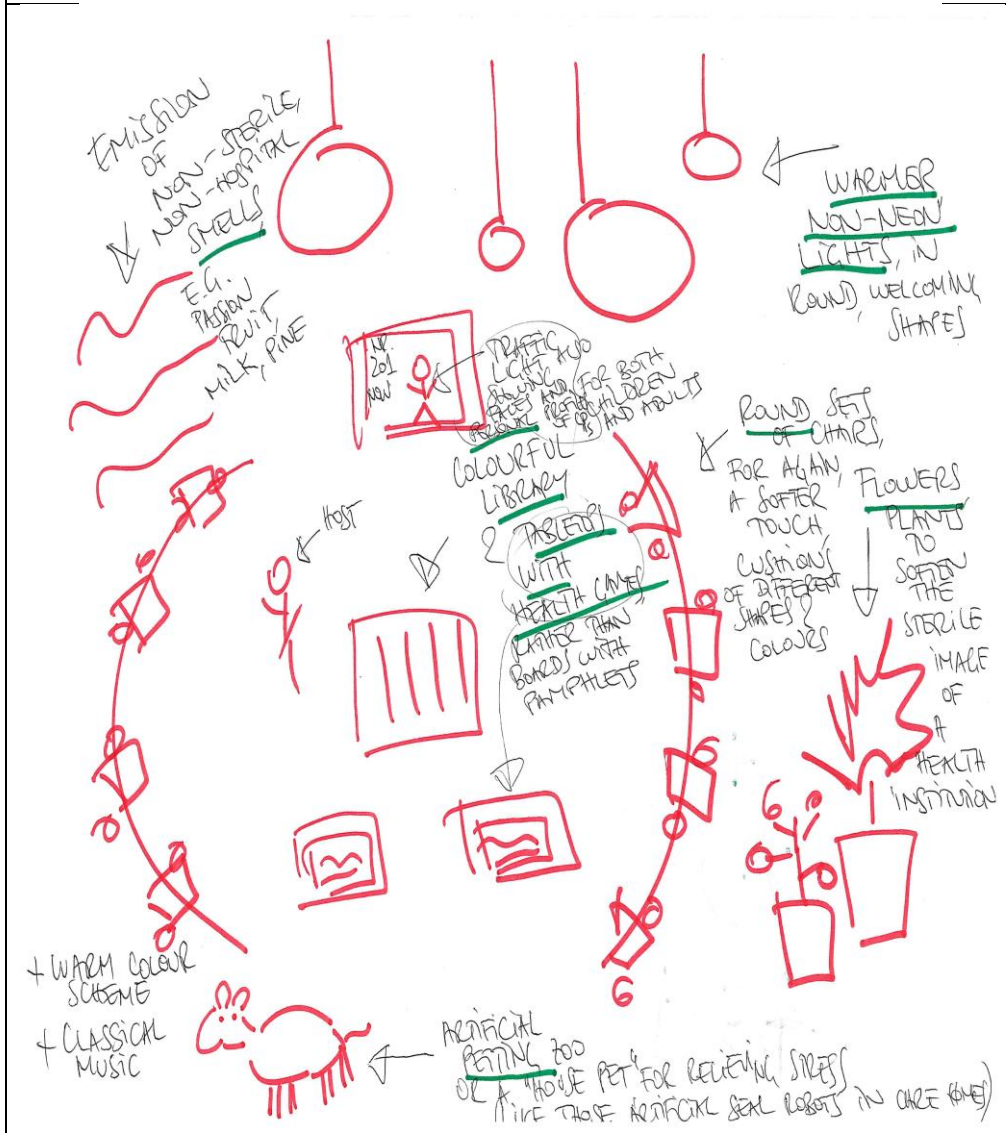 EMISSION
OF
NON-STERILE,
NON-HOSPITAL
SMELLS
E.G.
PASSION
FRUIT
MILK, PINE
WARMER
NON-NEON
LIGHTS, IN
ROUND, WELCOMING
SHAPES
NR.
201
NOW
TRAFFIC
LIGHT ALSO
SHOWING
FACES AND
PERSONAL PROFILES
OF
FOR BOTH
CHILDREN
AND ADULTS
COLOURFUL
LIBRARY
&
TABLETS
WITH
HEALTH GAMES
RATHER THAN
BOARDS WITH
PAMPHLETS
HOST
ROUND SETS
OF CHAIRS,
FOR AGAIN,
A SOFTER
TOUCH,
CUSHIONS
OF DIFFERENT
SHAPES &
COLOURS
FLOWERS
PLANTS
TO
SOFTEN
THE
STERILE
IMAGE
OF
A
HEALTH
INSTITUTION
+ WARM COLOUR
SCHEME
+ CLASSICAL
MUSIC
ARTIFICIAL
PETTING ZOO
OR A "HOUSE PET" FOR RELIEVING STRESS
(LIKE THOSE ARTIFICIAL SEAL ROBOTS IN CARE HOMES)